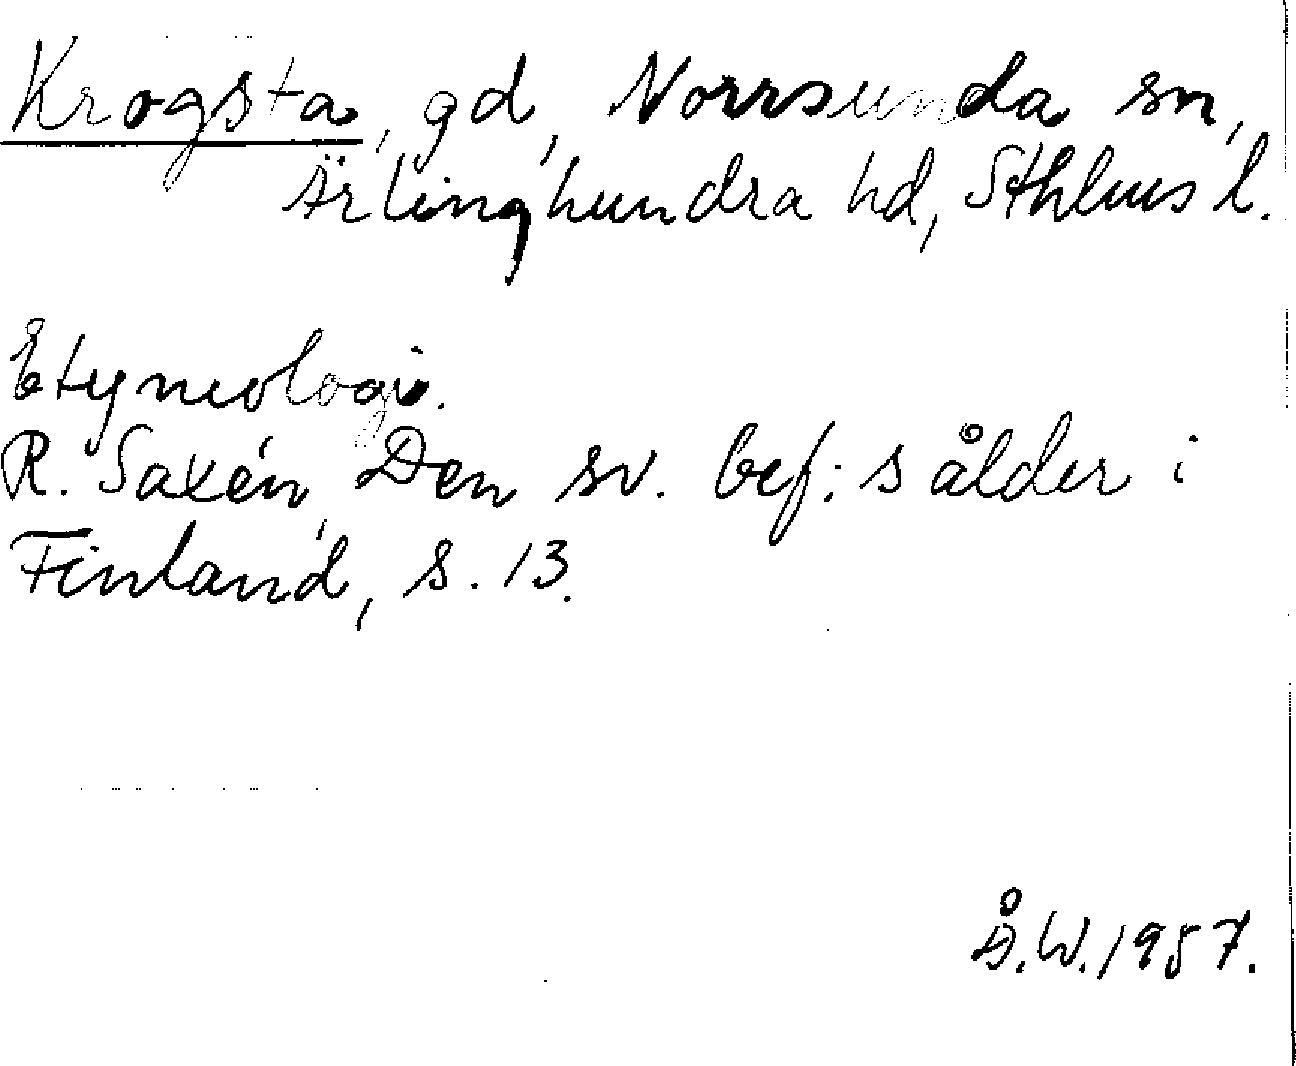 Krogsta, gd, Norrsunda sn,
Ärlinghundra hd, Sthlms l.
Etymologi.
R. Saxén, Den sv. bef:s ålder i
Finland, s. 13.
Å.W. 1957.